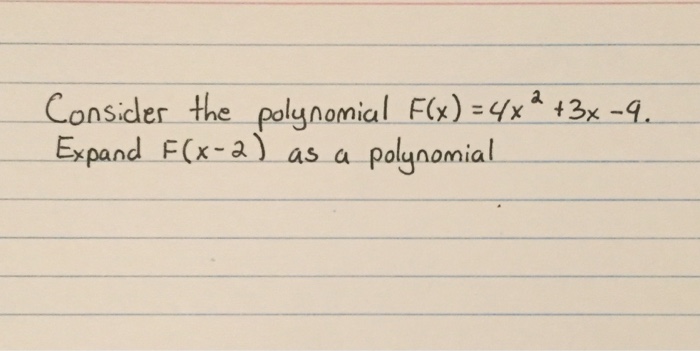 Consider the polynomial F(x) = 4x² + 3x - 9.
Expand F(x-2) as a polynomial